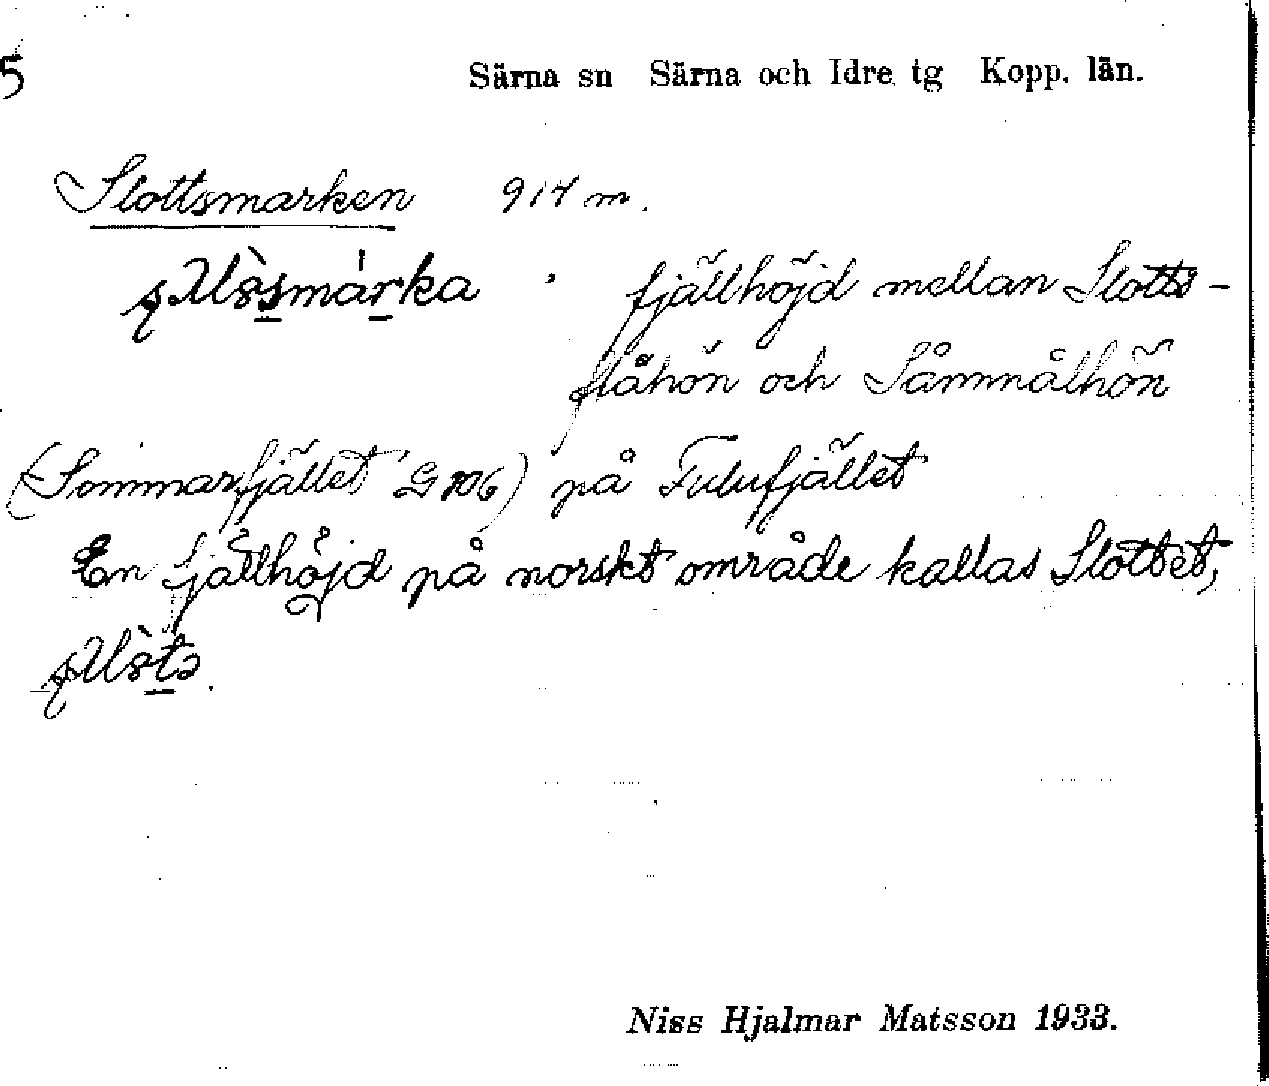 5
Särna sn Särna och Idre tg Kopp. län.
Slottsmarken 914 m.
fjällhöjd mellan Slotts-
flåhön och Såmmålhön
(Sommarfjället G 106) på Fulufjället
En fjällhöjd på norskt område kallas Slottet,
Niss Hjalmar Matsson 1933.